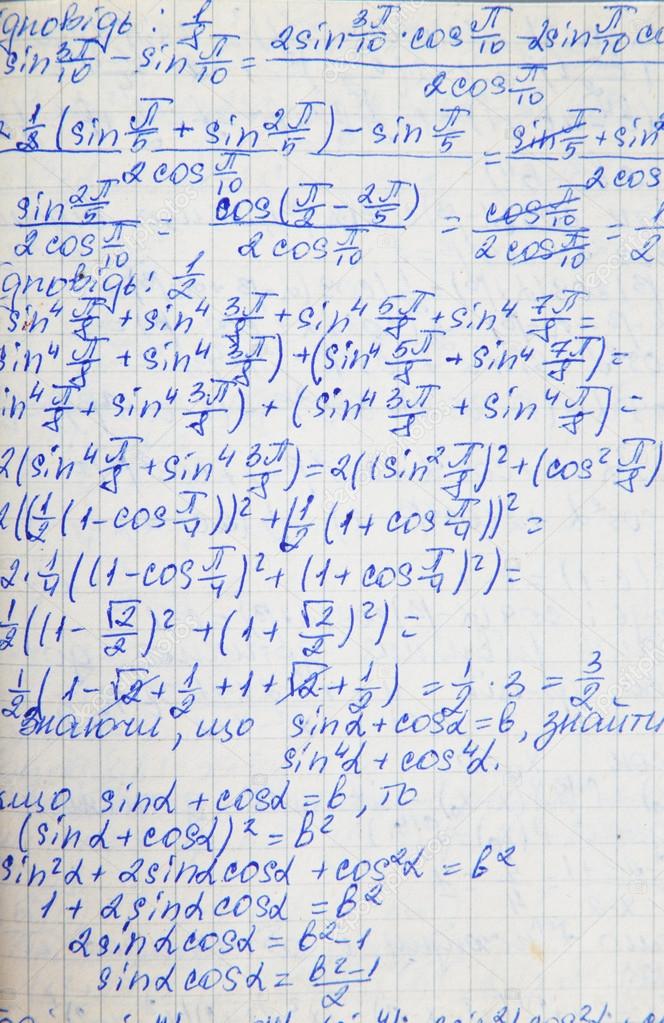 дповідь: 1/8
sin 3π/10 - sin π/10 = (2sin 3π/10 · cos π/10 - 2sin π/10 co
1/2 (sin π/5 + sin 2π/5) - sin π/5 / 2cos π/10 = sin π/5 + sin / 2cos
sin 2π/5 / 2cos π/10 = cos(π/2 - 2π/5) / 2cos π/10 = cos π/10 / 2cos π/10 = 1/2
дповідь: 1/2
sin⁴ π/8 + sin⁴ 3π/8 + sin⁴ 5π/8 + sin⁴ 7π/8 =
sin⁴ π/8 + sin⁴ 3π/8) + (sin⁴ 5π/8 + sin⁴ 7π/8) =
in⁴ π/8 + sin⁴ 3π/8) + (sin⁴ 3π/8 + sin⁴ π/8) =
2(sin⁴ π/8 + sin⁴ 3π/8) = 2((sin² π/8)² + (cos² π/8)
2((1/2(1-cos π/4))² + (1/2(1+cos π/4))² =
2·1/4((1-cos π/4)² + (1+cos π/4)²) =
1/2((1-√2/2)² + (1+√2/2)²) =
1/2(1-√2+1/2+1+√2+1/2) = 1/2·3 = 3/2
знаючи, що sinα+cosα=b, знайти
sin⁴α+cos⁴α.
кщо sinα+cosα=b, то
(sinα+cosα)²=b²
sin²α+2sinαcosα+cos²α=b²
1+2sinαcosα=b²
2sinαcosα=b²-1
sinαcosα=(b²-1)/2